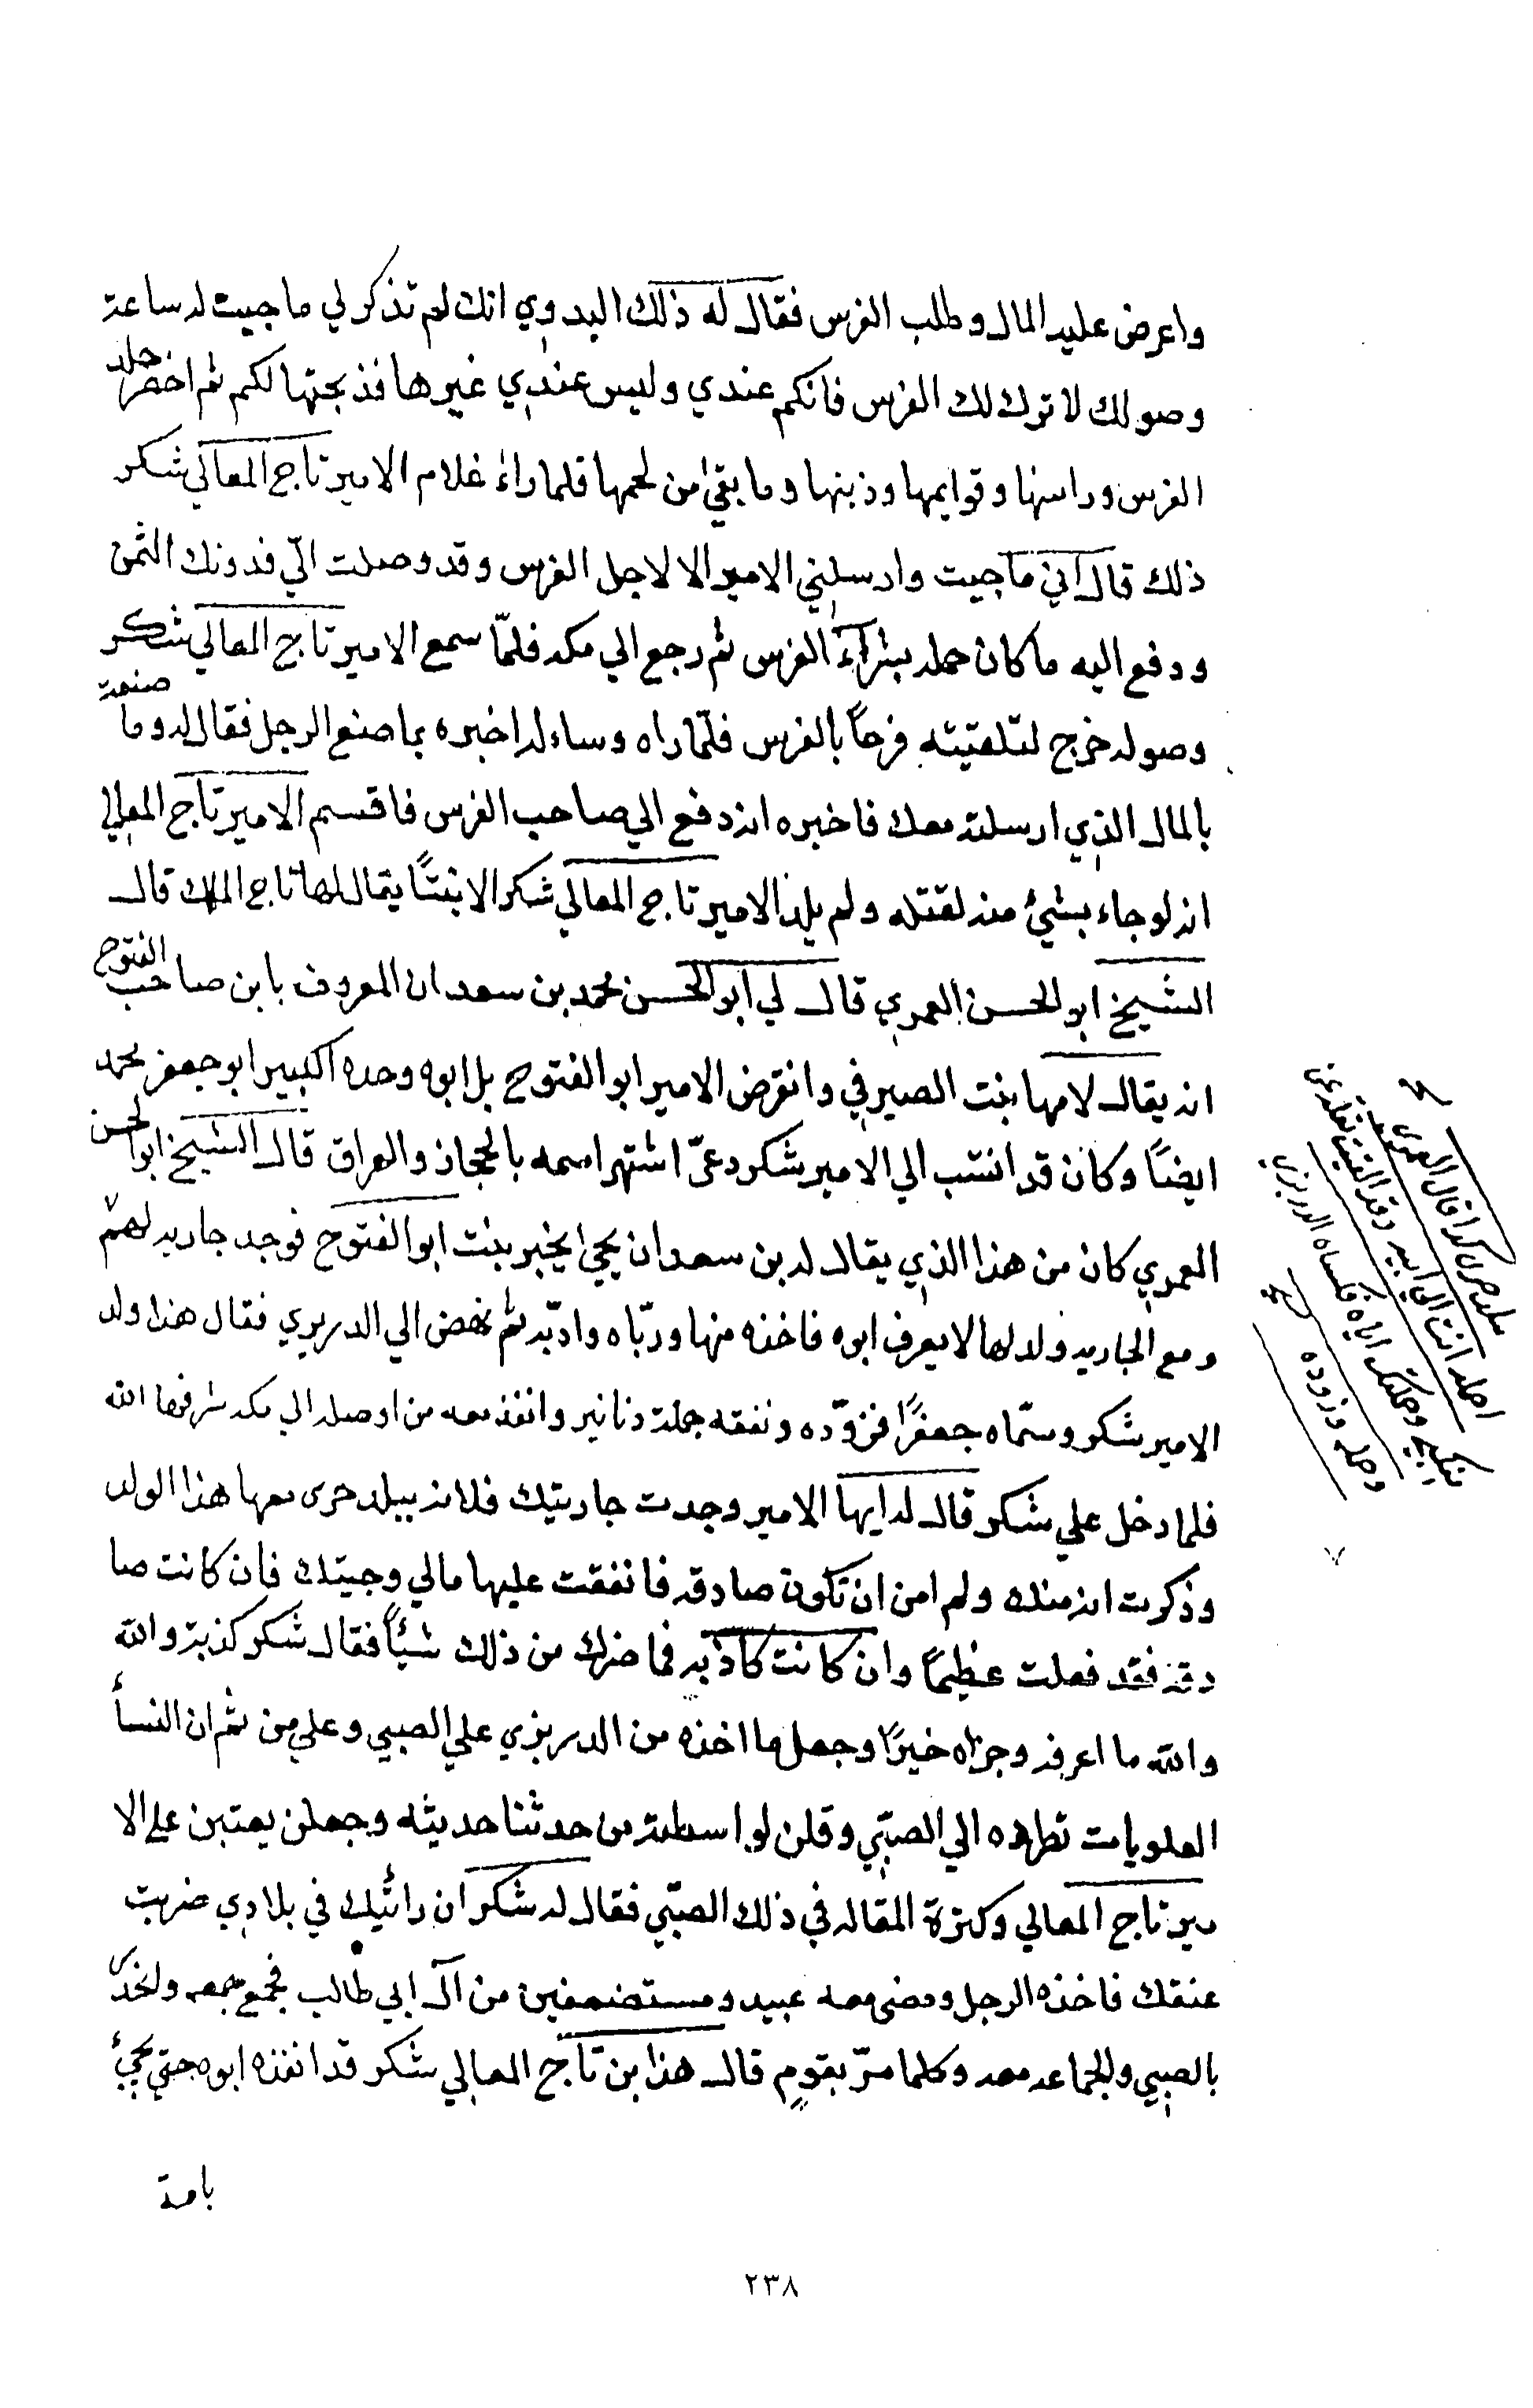 واعرض عليه المال وطلب الفرس فقال له ذلك البدوي انك لم تذكر لي ما جيت له ساعة
وصولك لا ترك لك الفرس فانكم عندي وليس عندي غيرها فذبحتها لكم ثم احضر جلد
الفرس وراسها وقوايمها وذنبها وما بقي من لحمها فلما راى غلام الامير تاج المعالي شكر
ذلك قال اني ما جيت وارسلني الامير الا لاجل الفرس وقد وصلت اليّ فدونك الثمن
ودفع اليه ما كان حمله بشرآء الفرس ثم رجع الي مكه فلمّا سمع الامير تاج المعالي شكر
وصوله خرج لتلقيته فرحاً بالفرس فلمّا راه وساءله اخبره بما صنع الرجل فقال له وما صنعت
بالمال الذي ارسلته معك فاخبره انه دفع الي صاحب الفرس فاقسم الامير تاج المعالي
انه لو جاء بشيئ منه لقتله ولم يلد الامير تاج المعالي شكر الا بنتاً يقال لها تاج الملك قال
الشيخ ابو الحسن العمري قال لي ابو الحسن محمد بن سعدان المعروف بابن صاحب الفتوح
انه يقال لامها بنت الصيرفي وانقرض الامير ابو الفتوح بل ابوه وحده اكبير ابو جعفر محمد
ايضاً وكان قد انتسب الي الامير شكر دعيّ اشتهر اسمه بالحجاز والعراق قال الشيخ ابو الحسن
العمري كان من هذا الذي يقال له بن سعدان يجئ يخبر بنت ابو الفتوح فوجد جاريه لهم
ومع الجاريه ولد لها لا يعرف ابوه فاخذه منها وربّاه وادبّه ثم نهض الي الدربري فقال هذا ولد
الامير شكر وسمّاه جعفراً فزوّده ونفقه جملة دنانير وانفذ معه من اوصله الي مكه شرفها الله
فلما دخل علي شكر قال له ايها الامير وجدت جاريتك فلانه ببلد حرى معها هذا الولد
وذكرت انه منك ولم امن ان تكون صادقه فانفقت عليها مالي وجيتك فان كانت صا
دقه فقد فعلت عظيماً وان كانت كاذبه فما ضرك من ذلك شيئاً فقال شكر كذبة والله
والله ما اعرفه وجزاه خيراً وجعل ما اخذه من الدربزي علي الصبي وعلي من ثم ان النسأ
العلويات تطرهده الي الصبّي وقلن لواسطته من حدثنا حديثه وجعلن يعتبن علي الا
مير تاج المعالي وكثرة المقاله في ذلك الصبّي فقال له شكر ان رائتك في بلادي ضربت
عنقك فاخذه الرجل ومضى معه عبيد ومستضعفين من آل ابي طالب فجمع جمعه واخذ
بالصبي والجماعه معه وكلما مرّ بقومٍ قال هذا بن تاج المعالي شكر قد انفذه ابوه حتي يجئ
بامة
كذا قال العمري
٢٣٨